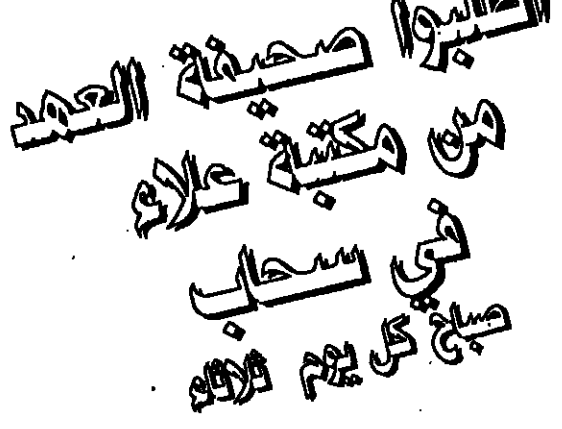 اطلبوا صحيفة العهد
من مكتبة علاء
في سحاب
صباح كل يوم ثلاثاء